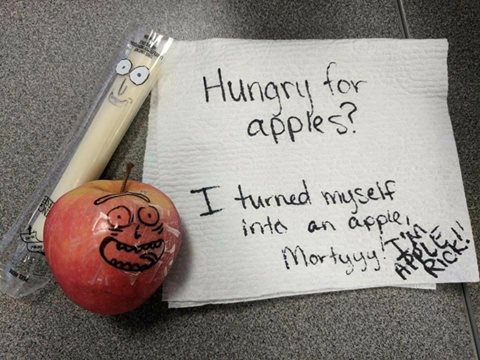 Hungry for
apples?
I turned myself
into an apple,
Mortyyy!
I'M
APPLE
RICK!!